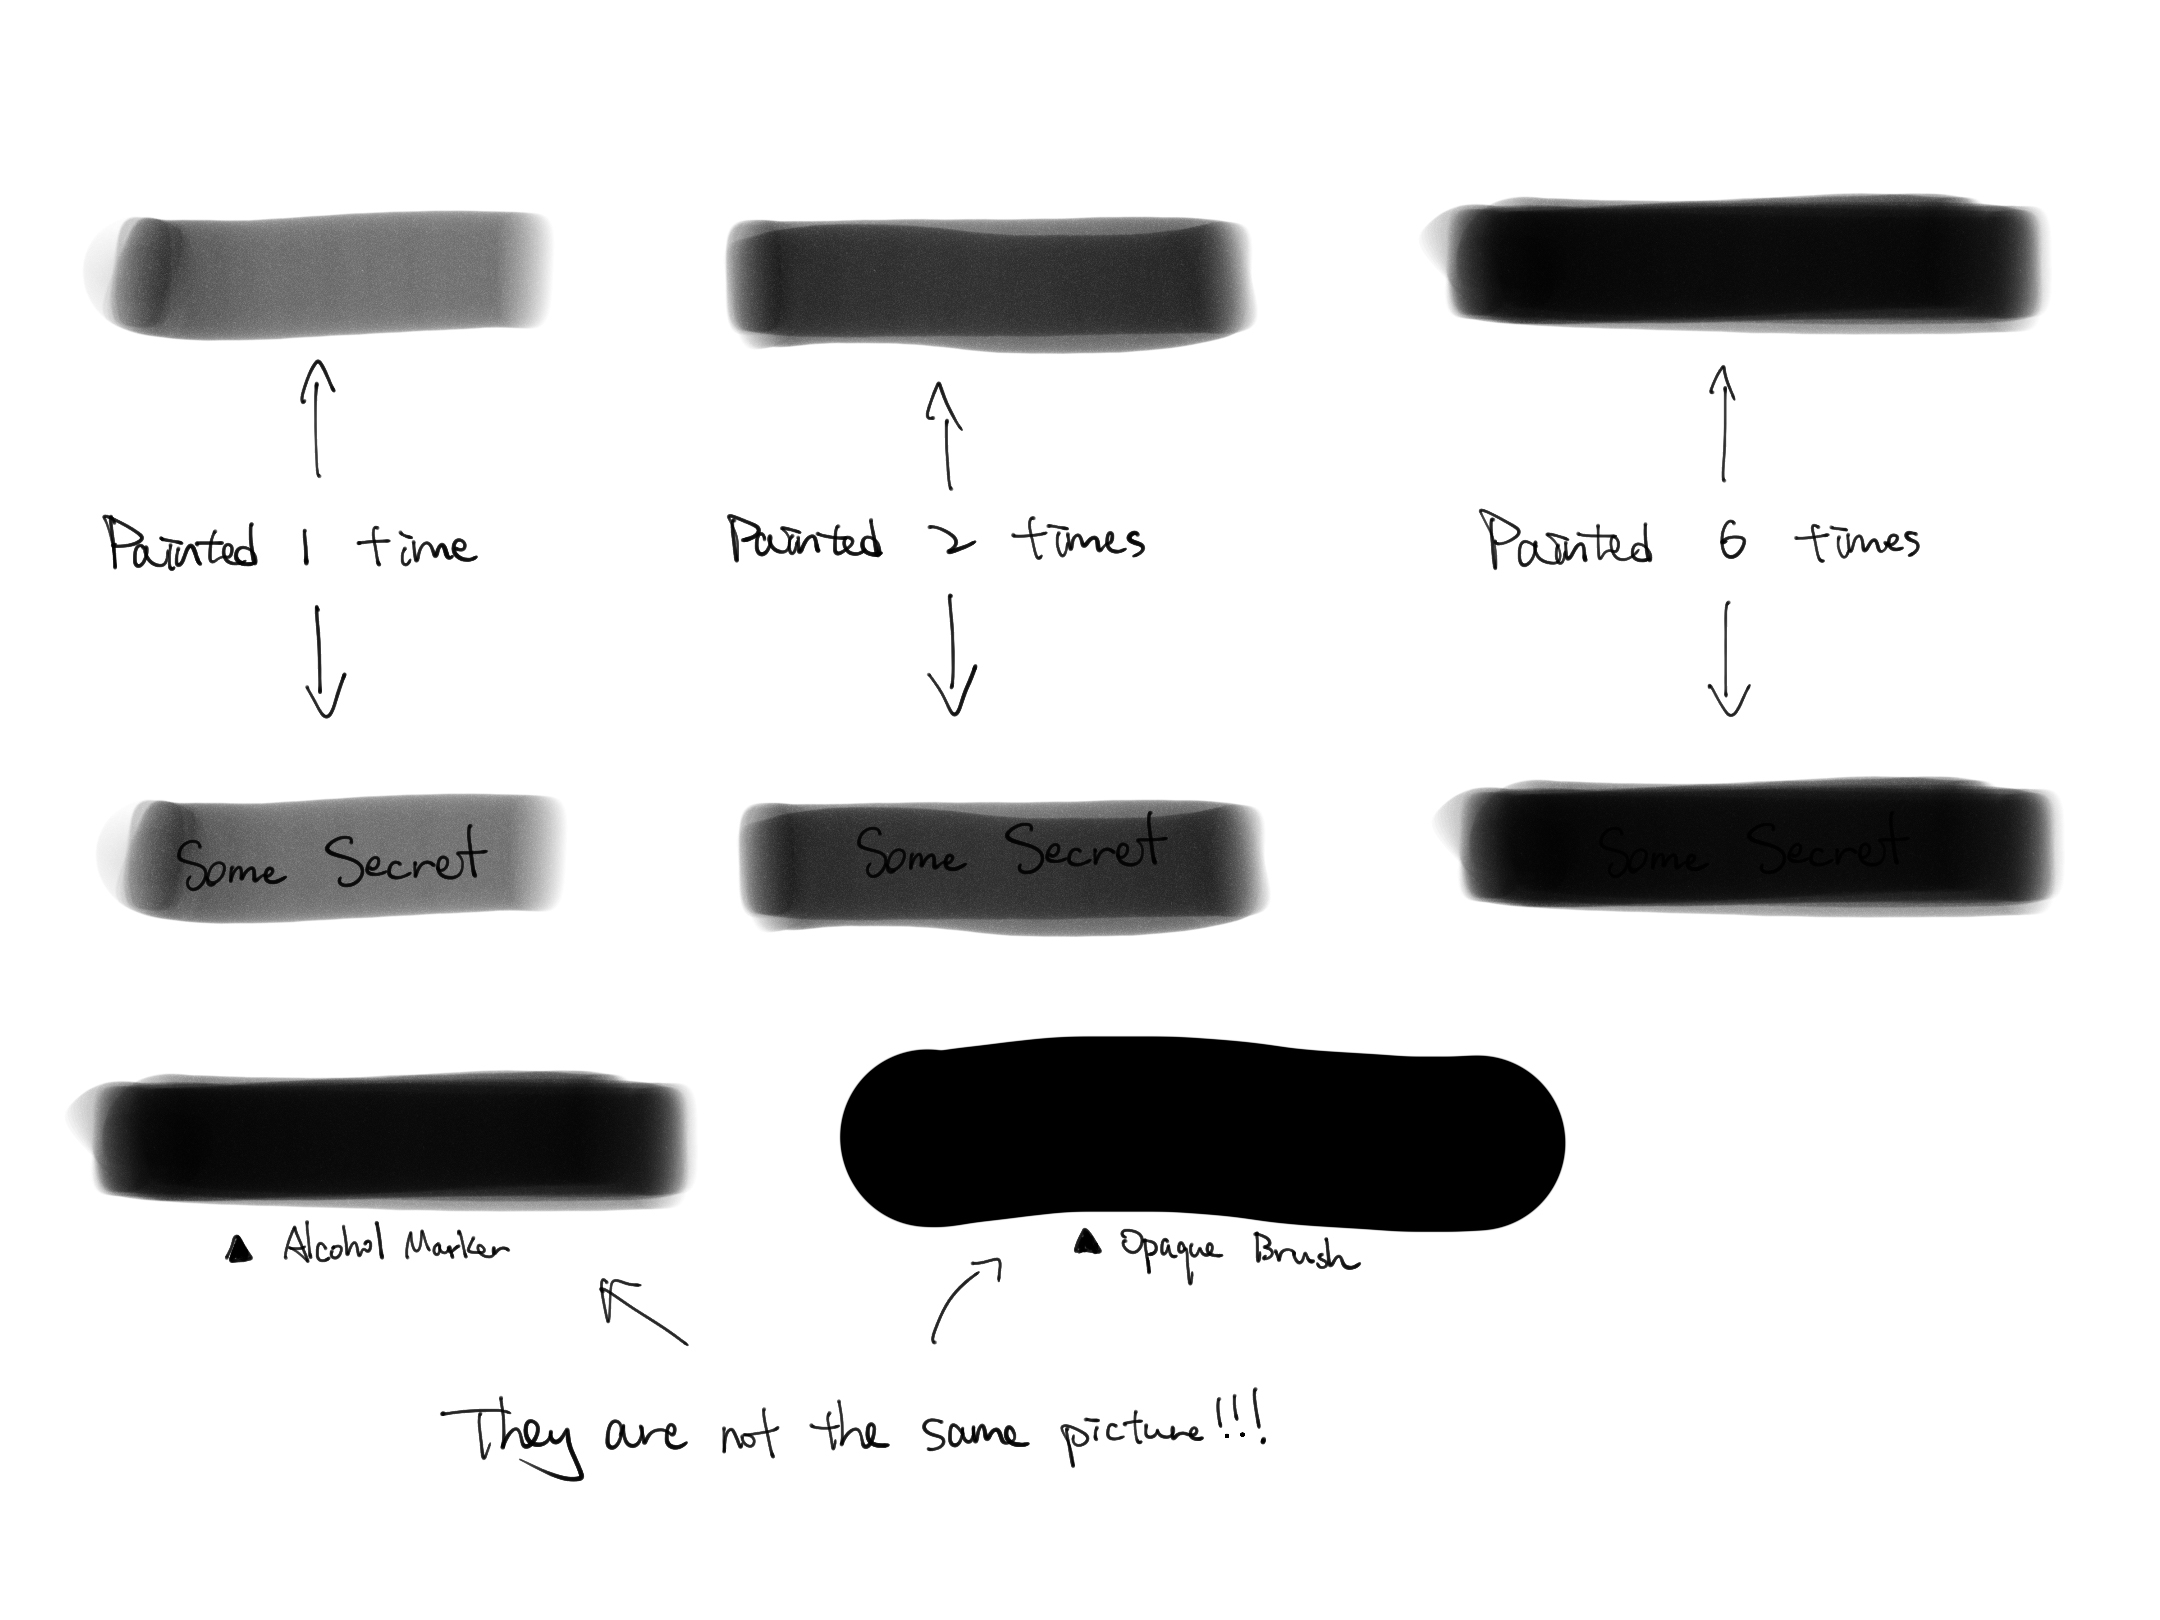 Painted 1 time
Painted 2 times
Painted 6 times
Some Secret
Some Secret
Some Secret
▲ Alcohol Marker
▲ Opaque Brush
They are not the same picture!!!